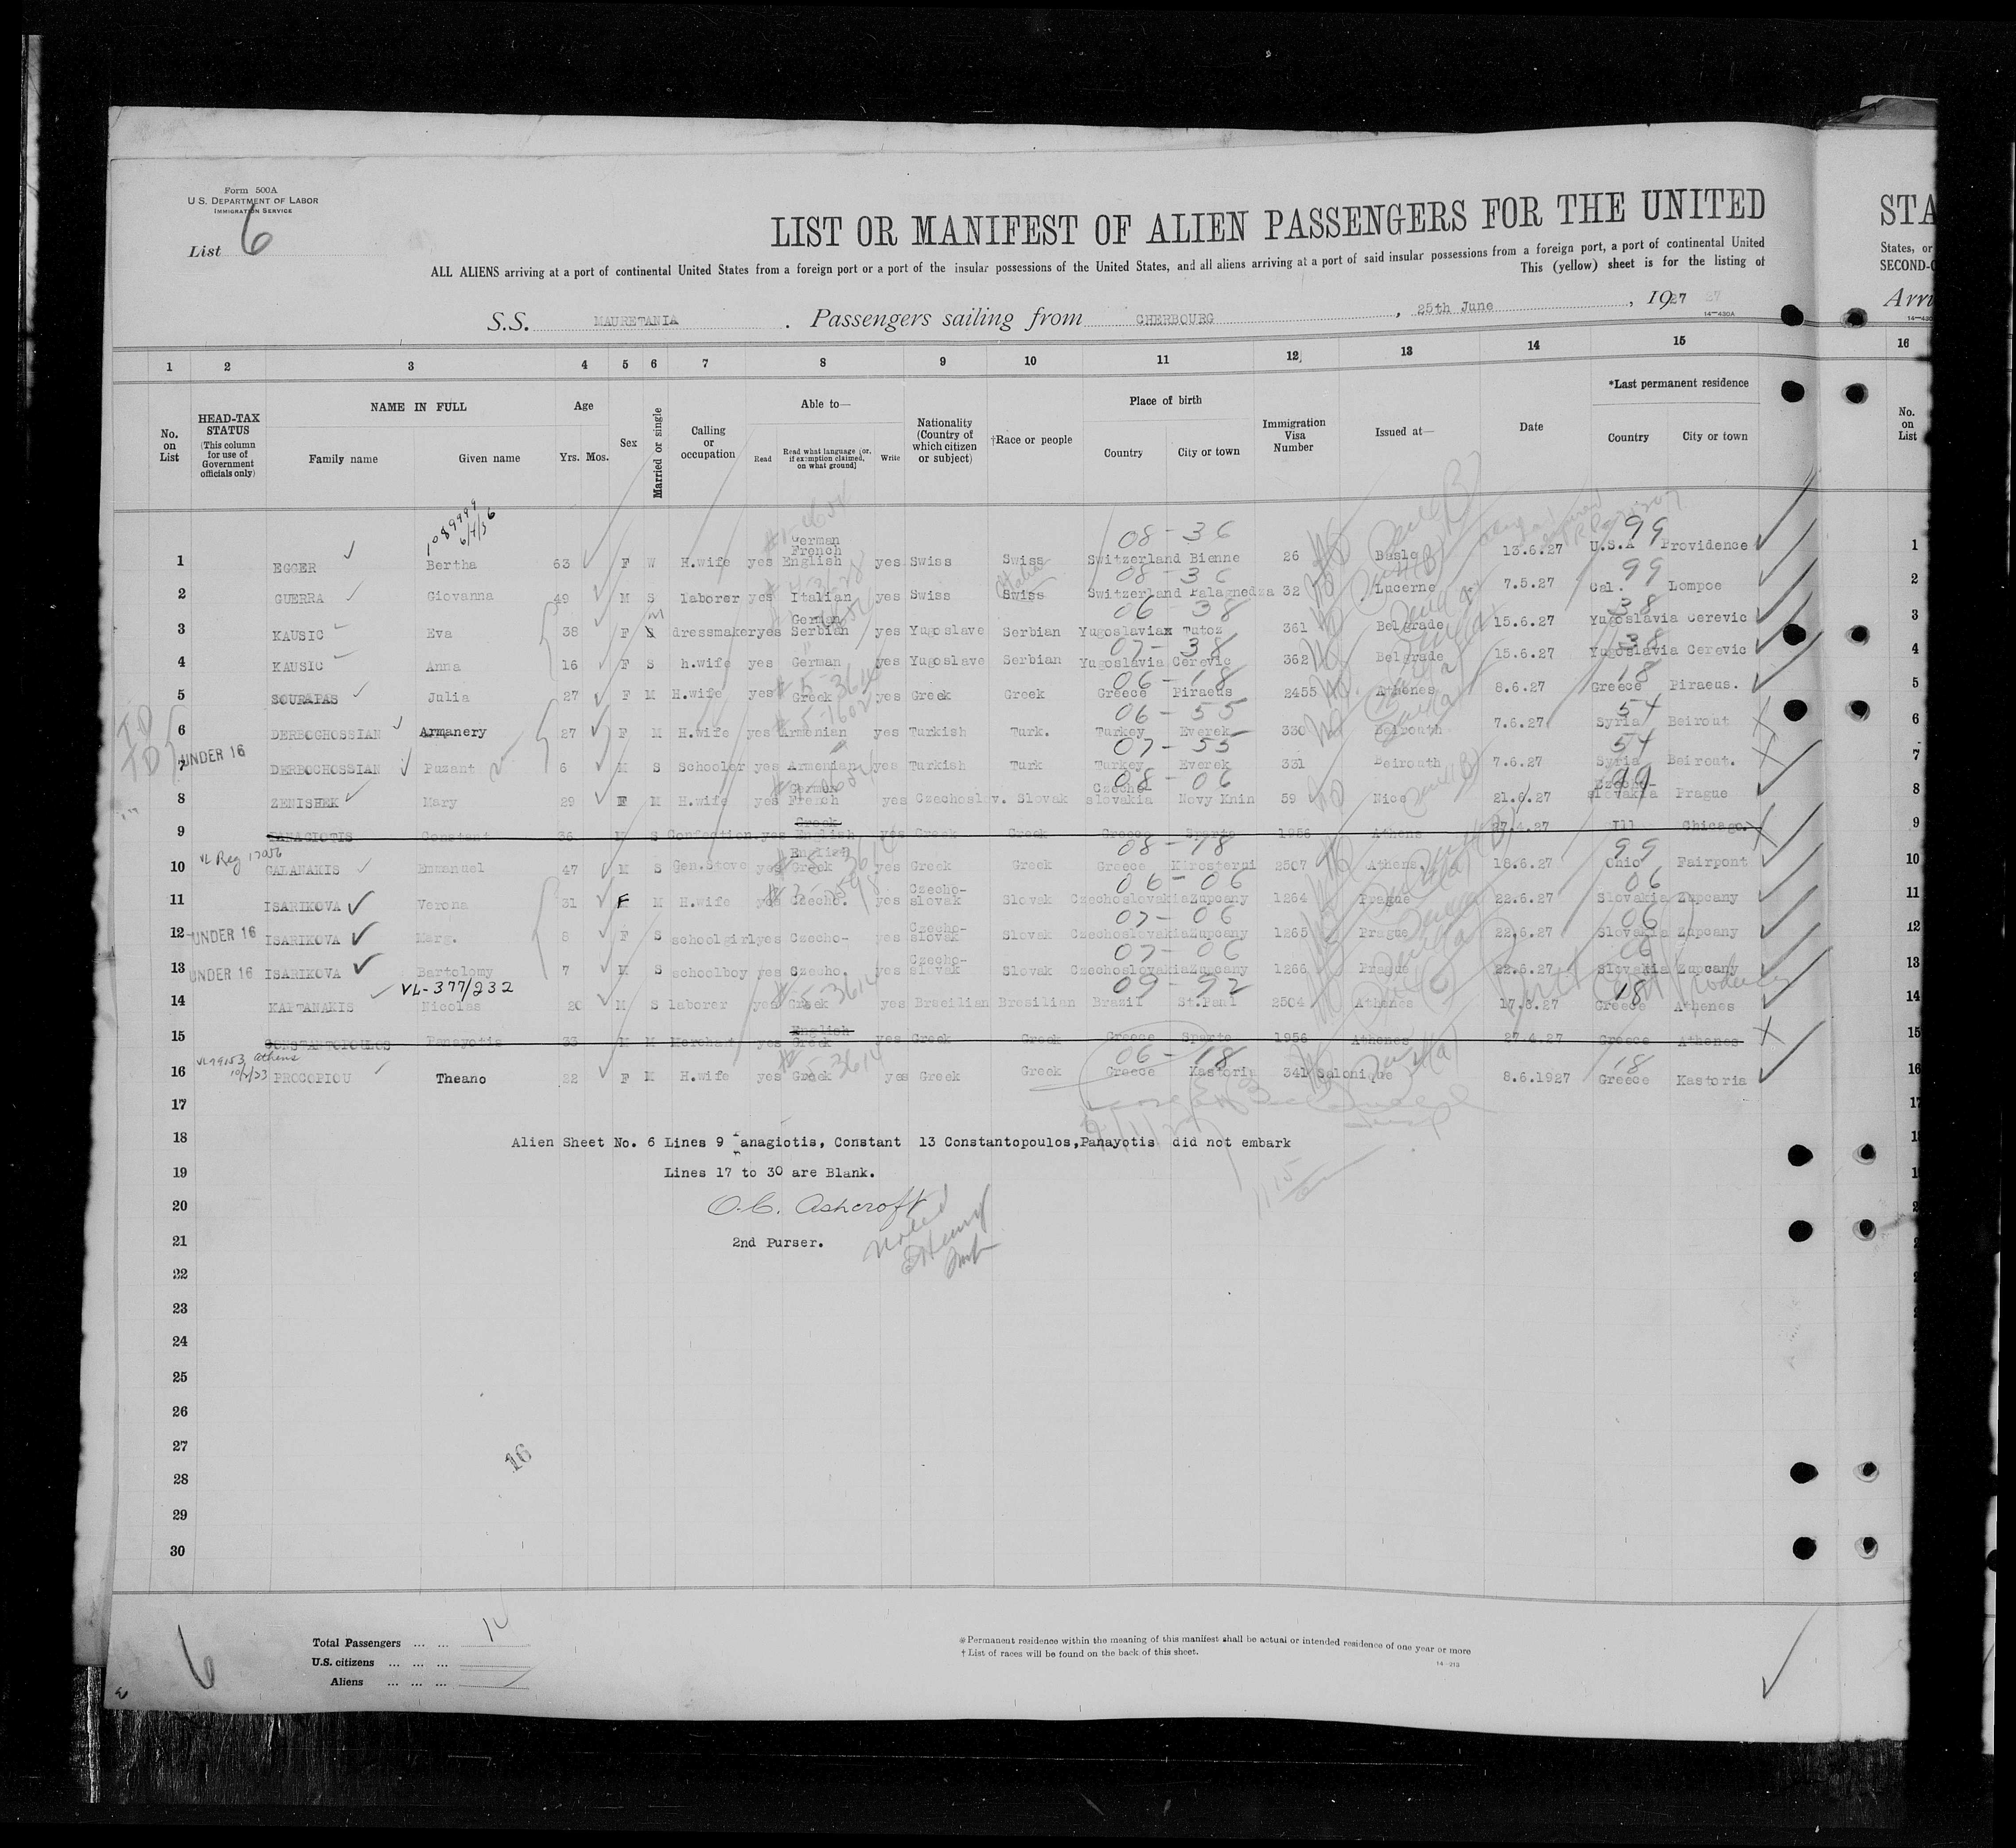 Form 500A
U. S. DEPARTMENT OF LABOR
IMMIGRATION SERVICE
List 6
LIST OR MANIFEST OF ALIEN PASSENGERS FOR THE UNITED
STA
ALL ALIENS arriving at a port of continental United States from a foreign port or a port of the insular possessions of the United States, and all aliens arriving at a port of said insular possessions from a foreign port, a port of continental United
States, or
This (yellow) sheet is for the listing of
SECOND-C
S.S. MAURETANIA . Passengers sailing from CHERBOURG , 25th June , 1927 27
Arri
14—430A
1 2 3 4 5 6 7 8 9 10 11 12 13 14 15 16
No. on List
HEAD-TAX STATUS (This column for use of Government officials only)
NAME IN FULL
Family name Given name
Age
Yrs. Mos.
Sex
Married or single
Calling or occupation
Able to—
Read
Read what language [or, if exemption claimed, on what ground]
Write
Nationality (Country of which citizen or subject)
†Race or people
Place of birth
Country City or town
Immigration Visa Number
Issued at—
Date
*Last permanent residence
Country City or town
No. on List
1089999
6/4/36
08-36 99
1 EGGER Bertha 63 F W H.wife yes German French English yes Swiss Swiss Switzerland Bienne 26 Basle 13.6.27 U.S.A Providence 1
08-36 99
2 GUERRA Giovanna 49 M S laborer yes Italian yes Swiss Swiss Italian Switzerland Palagnedza 32 Lucerne 7.5.27 Cal. Lompoc 2
06-38 38
3 KAUSIC Eva 38 F S M dressmaker yes German Serbian yes Yugoslave Serbian Yugoslaviax Tutoz 361 Belgrade 15.6.27 Yugoslavia Cerevic 3
07-38 38
4 KAUSIC Anna 16 F S h.wife yes German yes Yugoslave Serbian Yugoslavia Cerevic 362 Belgrade 15.6.27 Yugoslavia Cerevic 4
06-18 18
5 SOURAPAS Julia 27 F M H.wife yes Greek yes Greek Greek Greece Piraeus 2455 Athenes 8.6.27 Greece Piraeus. 5
06-55 54
TD
6 DERBOGHOSSIAN Armanery 27 F M H.wife yes Armenian yes Turkish Turk. Turkey Everek 330 Beirouth 7.6.27 Syria Beirout 6
07-55 54
TD
7 UNDER 16 DERBOCHOSSIAN Puzant 6 M S Schooler yes Armenian yes Turkish Turk Turkey Everek 331 Beirouth 7.6.27 Syria Beirout. 7
08-06 99
8 ZENISHEK Mary 29 F M H.wife yes German French yes Czechoslov. Slovak Czecho slovakia Novy Knin 59 Nice 21.6.27 Czecho-slovakia Prague 8
9 PANAGIOTIS Constant 36 M S Confection. yes Greek English yes Greek Greek Greece Sparte 1956 Athens 27.4.27 Ill Chicago. 9
08-18 99
VL Reg 17056
10 GALANAKIS Emmanuel 47 M S Gen.Stove yes English Greek yes Greek Greek Greece Kirosterni 2507 Athens 18.6.27 Ohio Fairpont 10
06-06 06
11 ISARIKOVA Verona 31 F M H.wife yes Czecho. yes Czecho-slovak Slovak Czechoslovakia Zupcany 1264 Prague 22.6.27 Slovakia Zupcany 11
07-06 06
12 UNDER 16 ISARIKOVA Marg. 8 F S schoolgirl yes Czecho- yes Czecho-slovak Slovak Czechoslovakia Zupcany 1265 Prague 22.6.27 Slovakia Zupcany 12
07-06 06
13 UNDER 16 ISARIKOVA Bartolomy 7 M S schoolboy yes Czecho. yes Czecho-slovak Slovak Czechoslovakia Zupcany 1266 Prague 22.6.27 Slovakia Zupcany 13
VL-377/232
09-92 18
14 KAPTANAKIS Nicolas 20 M S laborer yes Greek yes Brezilian Brezilian Brazil St.Paul 2504 Athenes 17.6.27 Greece Athenes 14
15 CONSTANTOPOULOS Panayotis 33 M M Merchant yes English Greek yes Greek Greek Greece Sparte 1956 Athenes 27.4.27 Greece Athenes 15
VL 79153 Athens
10/2/23
06-18 18
16 PROCOPIOU Theano 22 F M H.wife yes Greek yes Greek Greek Greece Kastoria 341 Salonique 8.6.1927 Greece Kastoria 16
17
18 Alien Sheet No. 6 Lines 9 Panagiotis, Constant 13 Constantopoulos,Panayotis did not embark
19 Lines 17 to 30 are Blank.
20 O.C. Ashcroft
21 2nd Purser.
Noted
22
23
24
25
26
27
28
29
30
16
6
Total Passengers ... ...
U.S. citizens ... ... ...
Aliens ... ... ...
*Permanent residence within the meaning of this manifest shall be actual or intended residence of one year or more
†List of races will be found on the back of this sheet.
14—213